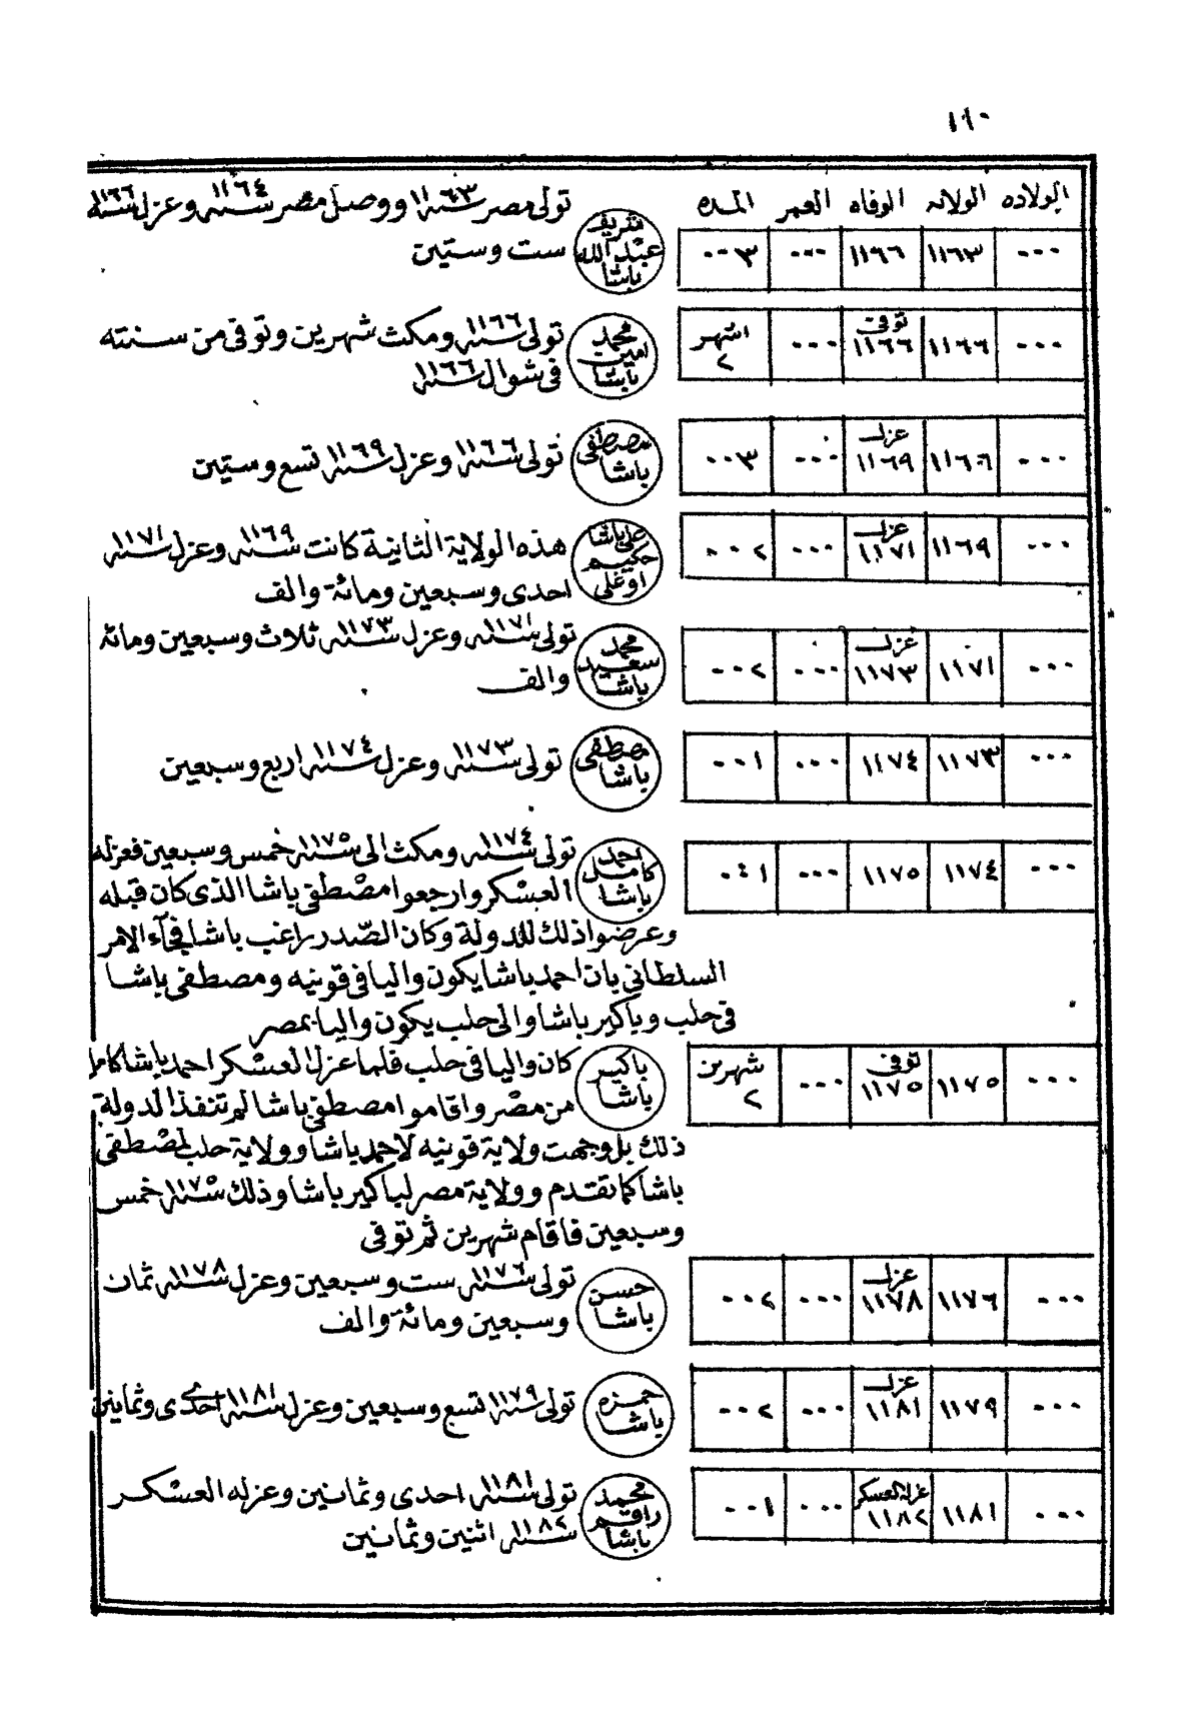 ١٦٠
الولاده الولاية الوفاه العمر المده
٠٠٠ ١١٦٣ ١١٦٦ ٠٠٠ ٠٠٣
شريف عبد الله باشا
تولى مصر سنة ١١٦٣ ووصل مصر سنة ١١٦٤ وعزل سنة ١١٦٦
ست وستين
٠٠٠ ١١٦٦ توفى ١١٦٦ ٠٠٠ اشهر ٢
محمد امين باشا
تولى سنة ١١٦٦ ومكث شهرين وتوفى من سنته
فى شوال سنة ١١٦٦
٠٠٠ ١١٦٦ عزل ١١٦٩ ٠٠٠ ٠٠٣
مصطفى باشا
تولى سنة ١١٦٦ وعزل سنة ١١٦٩ تسع وستين
٠٠٠ ١١٦٩ عزل ١١٧١ ٠٠٠ ٠٠٢
على باشا حكيم اوغلى
هذه الولاية الثانية كانت سنة ١١٦٩ وعزل سنة ١١٧١
احدى وسبعين ومائة والف
٠٠٠ ١١٧١ عزل ١١٧٣ ٠٠٠ ٠٠٢
محمد سعيد باشا
تولى سنة ١١٧١ وعزل سنة ١١٧٣ ثلاث وسبعين ومائة
والف
٠٠٠ ١١٧٣ ١١٧٤ ٠٠٠ ٠٠١
مصطفى باشا
تولى سنة ١١٧٣ وعزل سنة ١١٧٤ اربع وسبعين
٠٠٠ ١١٧٤ ١١٧٥ ٠٠٠ ٠٤١
احمد كامل باشا
تولى سنة ١١٧٤ ومكث الى سنة ١١٧٥ خمس وسبعين فعزله
العسكر وارجعوا مصطفى باشا الذى كان قبله
وعرضوا ذلك للدولة وكان الصدر راغب باشا فجآء الامر
السلطانى بان احمد باشا يكون واليا فى قونيه ومصطفى باشا
فى حلب وباكير باشا والى حلب يكون واليا بمصر
٠٠٠ ١١٧٥ توفى ١١٧٥ ٠٠٠ شهرين ٢
باكير باشا
كان واليا فى حلب فلما عزل العسكر احمد باشا كامل
من مصر واقاموا مصطفى باشا لم تنفذ الدولة
ذلك بل وجهت ولاية قونيه لاحمد باشا وولاية حلب لمصطفى
باشا كما تقدم وولاية مصر لباكير باشا وذلك سنة ١١٧٥ خمس
وسبعين فاقام شهرين ثم توفى
٠٠٠ ١١٧٦ عزل ١١٧٨ ٠٠٠ ٠٠٢
حسن باشا
تولى سنة ١١٧٦ ست وسبعين وعزل سنة ١١٧٨ ثمان
وسبعين ومائة والف
٠٠٠ ١١٧٩ عزل ١١٨١ ٠٠٠ ٠٠٢
حمزه باشا
تولى سنة ١١٧٩ تسع وسبعين وعزل سنة ١١٨١ احدى وثمانين
٠٠٠ ١١٨١ عزله العسكر ١١٨٢ ٠٠٠ ٠٠١
محمد راقم باشا
تولى سنة ١١٨١ احدى وثمانين وعزله العسكر
سنة ١١٨٢ اثنين وثمانين